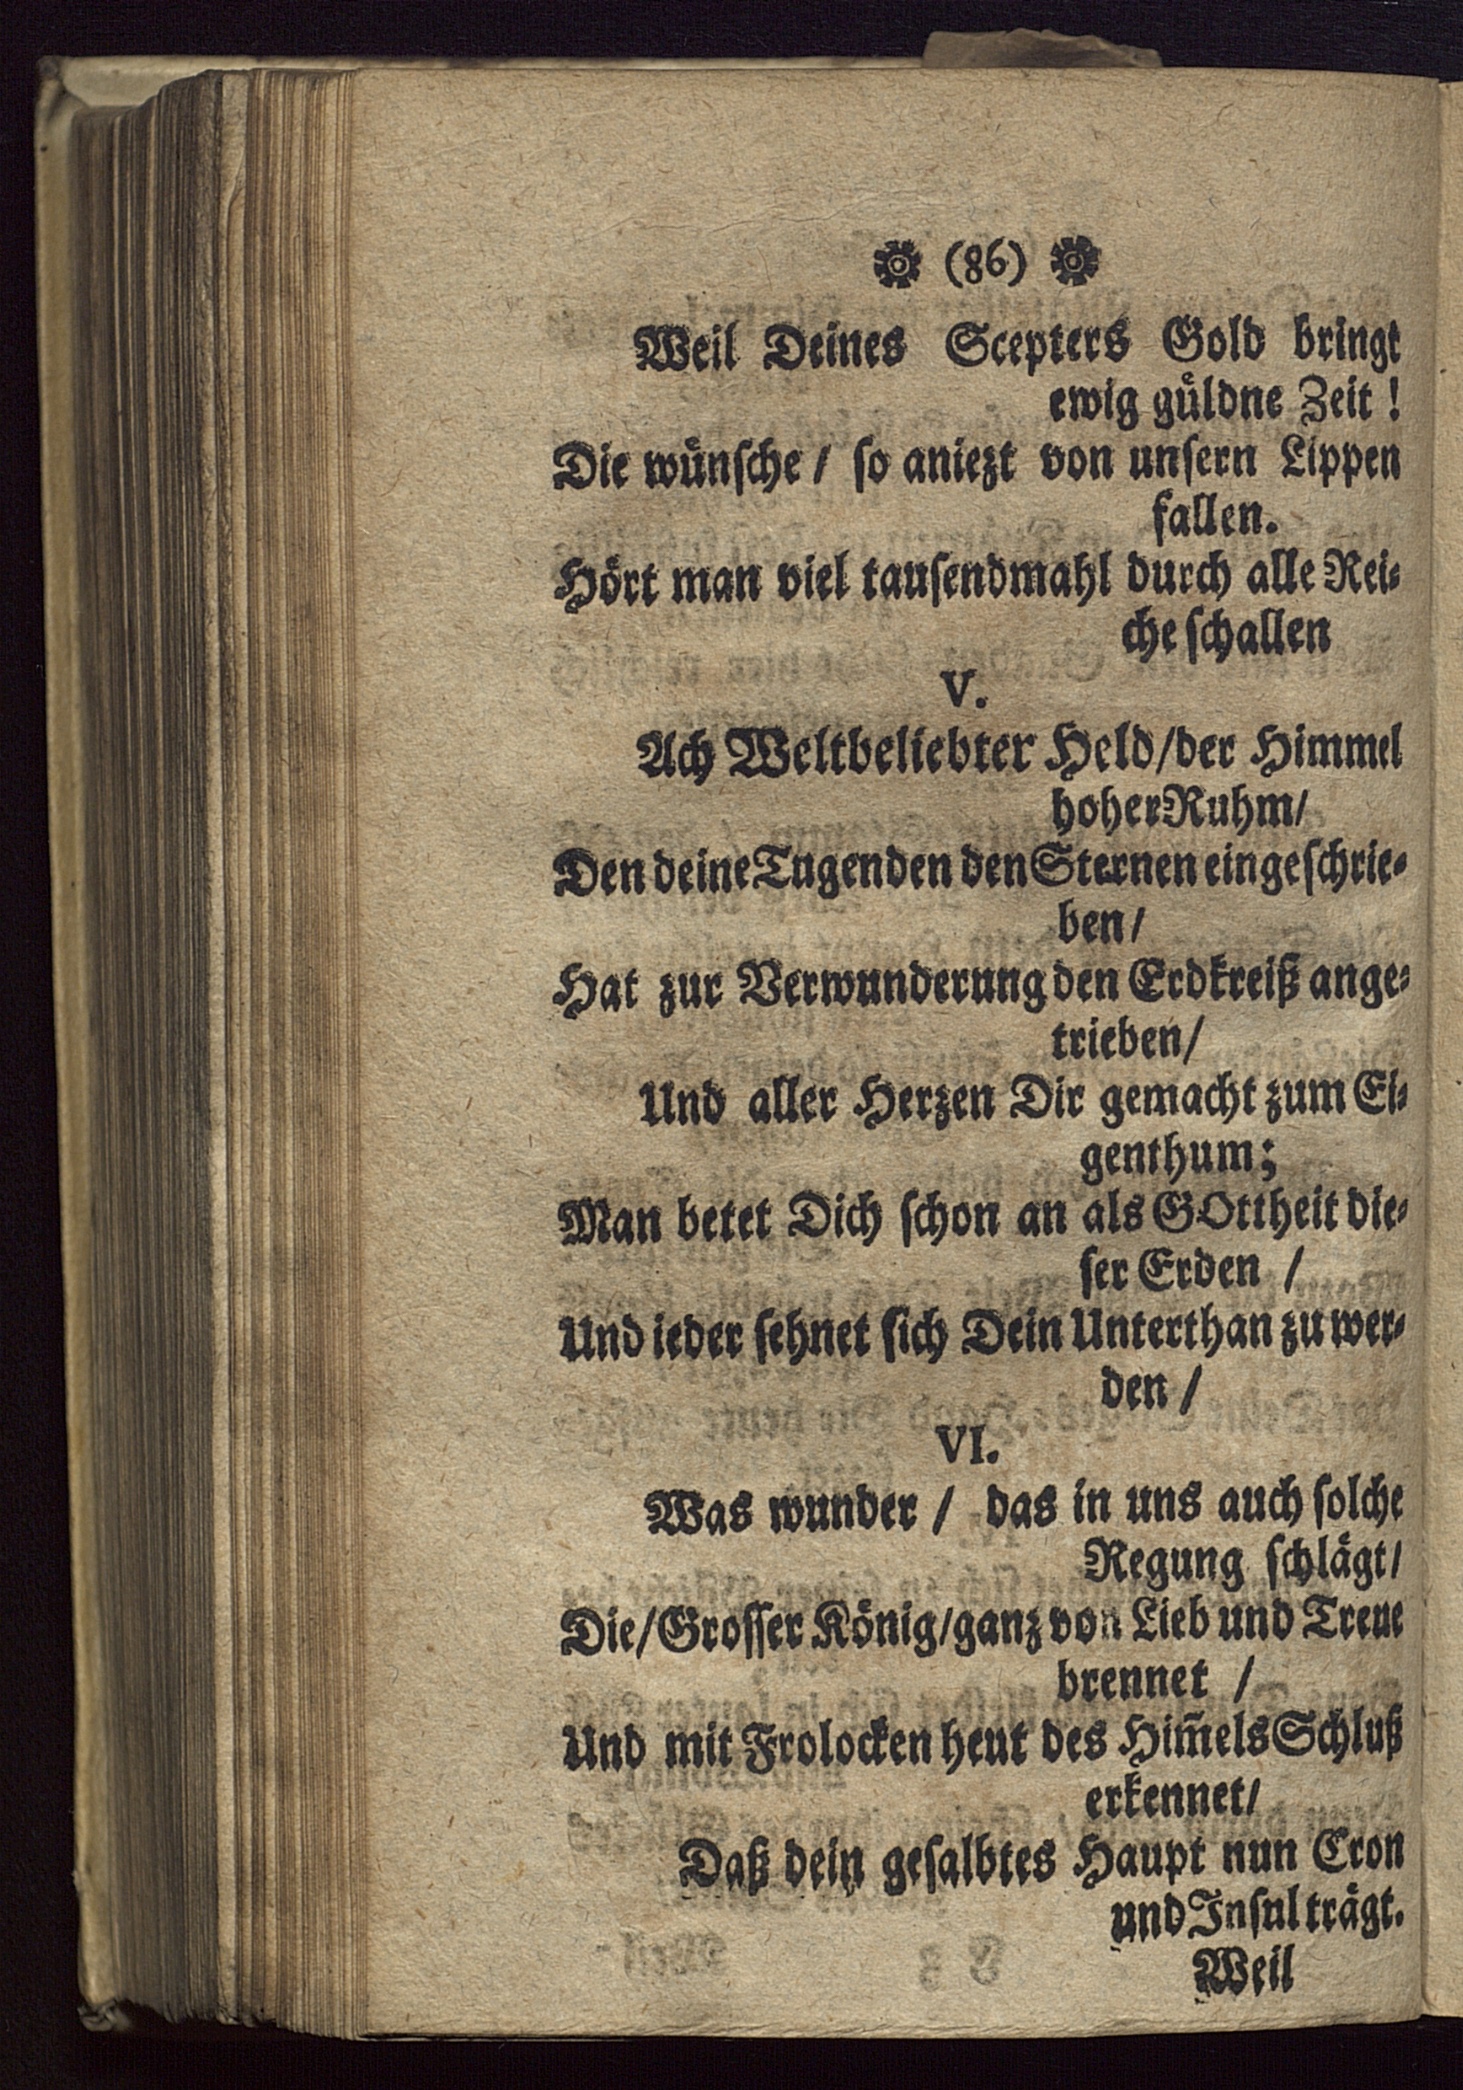 (86)
Weil Deines Scepters Gold bringt
ewig guͤldne Zeit !
Die wuͤnsche / so aniezt von unsern Lippen
fallen.
Hoͤrt man viel tausendmahl durch alle Rei-
che schallen
V.
Ach Weltbeliebter Held/der Himmel
hoherRuhm/
Den deineTugenden denSternen eingeschrie-
ben/
Hat zur Verwunderung den Erdkreiß ange-
trieben/
Und aller Herzen Dir gemacht zum Ei-
genthum;
Man betet Dich schon an als GOttheit die-
ser Erden /
Und ieder sehnet sich Dein Unterthan zu wer-
den /
VI.
Was wunder / das in uns auch solche
Regung schlaͤgt/
Die/Grosser Koͤnig/ganz von Lieb und Treue
brennet /
Und mit Frolocken heut des Him̃elsSchluß
erkennet/
Daß dein gesalbtes Haupt nun Cron
undInsul traͤgt.
Weil